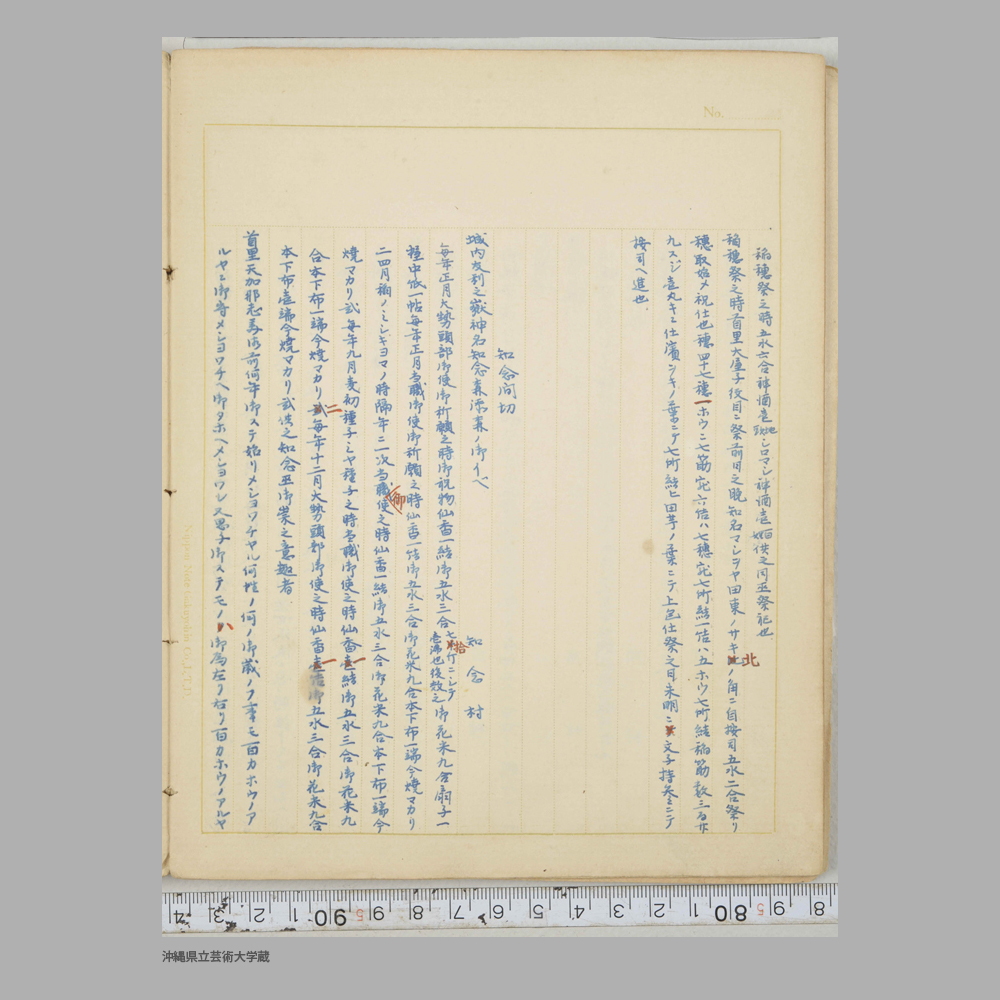 No.
稲穂祭之時五水六合神酒壱シロマシ神酒壱供之同巫祭祀也
稲穂祭之時首里大屋子役目ニ祭前日之晩知名マシラヤ田東ノサキ北ノ角ニ自按司五水二合祭リ
穂取始メ祝仕也穂四十七穂一ホウニ七筋宛六結ハ七穂宛七所結一結ハ五ホウ七所結稲筋数三百廿
九スジ壱丸キニ仕濱ンキノ葉ニテ七所結ヒ田芋ノ葉ニテ上包仕祭之日未明ニ文子持参ニテ
按司ヘ進也
知念間切
知念村
城内友利之嶽神名知念森添森ノ御イベ
毎年正月大勢頭部御使御祈願之時御祝物仙香一結御五水三合七拾行ニシテ壱沸也後效之御花米九合扇子一
握中紙一帖毎年正月当職御使御祈願之時仙香一結御五水三合御花米九合本下布一端今焼マカリ
二四月稲ノミシキヨマノ時隔年ニ一次当職御使之時仙香一結御五水三合御花米九合本下布一端今
焼マカリ弐毎年九月麦初種子ミヤ種子之時当職御使之時仙香一結御五水三合御花米九
合本下布一端今焼マカリ二毎年十二月大勢頭部御使之時仙香一結御五水三合御花米九合
本下布壱端今焼マカリ弐供之知念巫御崇之意趣者
首里天加那志美御前何年御ステ始リメシヨワチヤル何性ノ何ノ御歳ノフ事モ百カホウノア
ルヤニ御守メシヨワチヘ御タホヘメシヨワシ又思子御ステモノハ御為左リ右リ百カホウノアルヤ
Nippon Note Gakuyohin Co., L.T.D.
4 3 2 1 90 9 8 7 6 5 4 3 2 1 80 9 8
沖縄県立芸術大学蔵